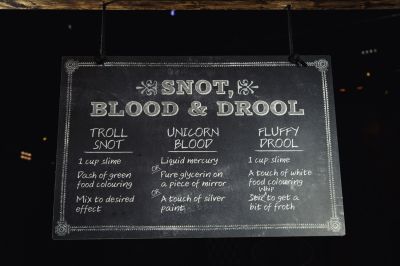 SNOT,
BLOOD & DROOL
TROLL
SNOT
1 cup slime
Dash of green
food colouring
Mix to desired
effect
UNICORN
BLOOD
Liquid mercury
OR
Pure glycerin on
a piece of mirror
OR
A touch of silver
paint
FLUFFY
DROOL
1 cup slime
A touch of white
food colouring
whip
Stir to get a
bit of froth